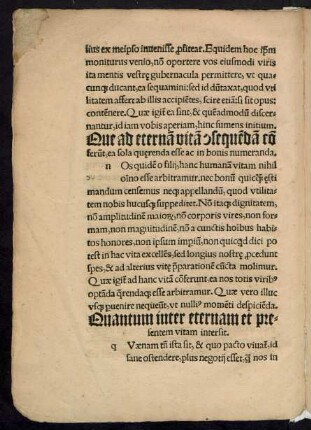 lius ex meipso inuenisse ꝓfitear. Equidem hoc ip̄m
moniturus venio, nō oportere vos eiusmodi viris
ita mentis vestrę gubernacula permittere, vt qua
cunq̨ ducant, ea sequamini: sed id dūtaxat, quod vti
litatem affert ab illis accipiētes, scire etiā: si sit opus:
contēnere. Quæ igit̄ ea sint, & quēadmodū discer-
nantur, id iam vobis aperiam, hinc sumens initium.
Que ad eternā vitā ɔsequēdā cō
ferūt, ea sola querenda esse ac in bonis numeranda.
n Os quidē o filij, hanc humanā vitam nihil
oīno esse arbitramur, nec bonū quicq̄ esti
mandum censemus neq̨ appellandū, quod vtilita-
tem nobis hucusq̨ suppeditet. Nō itaq̨ dignitatem,
nō amplitudinē maioꝝ, nō corporis vires, non for
mam, non magnitudinē, nō a cunctis hoībus habi-
tos honores, non ipsum impiū, non quicqd dici po
test in hac vita excellēs, sed longius nostrę, ꝓcedunt
spes, & ad alterius vitę p̄parationē cūcta molimur.
Quæ igit̄ ad hanc vitā cōferunt, ea nos totis virib̨
optāda q̄rendaq̨ esse arbitramur. Quæ vero illuc
vsq̨ puenire nequeūt, vt nulliꝰ momēti despiciēda.
Quantum inter eternam et pre-
sentem vitam intersit.
q Vænam tn̄ ista sit, & quo pacto viuaꝰ, id
sane ostendere, plus negotij esset, q̄ nos in